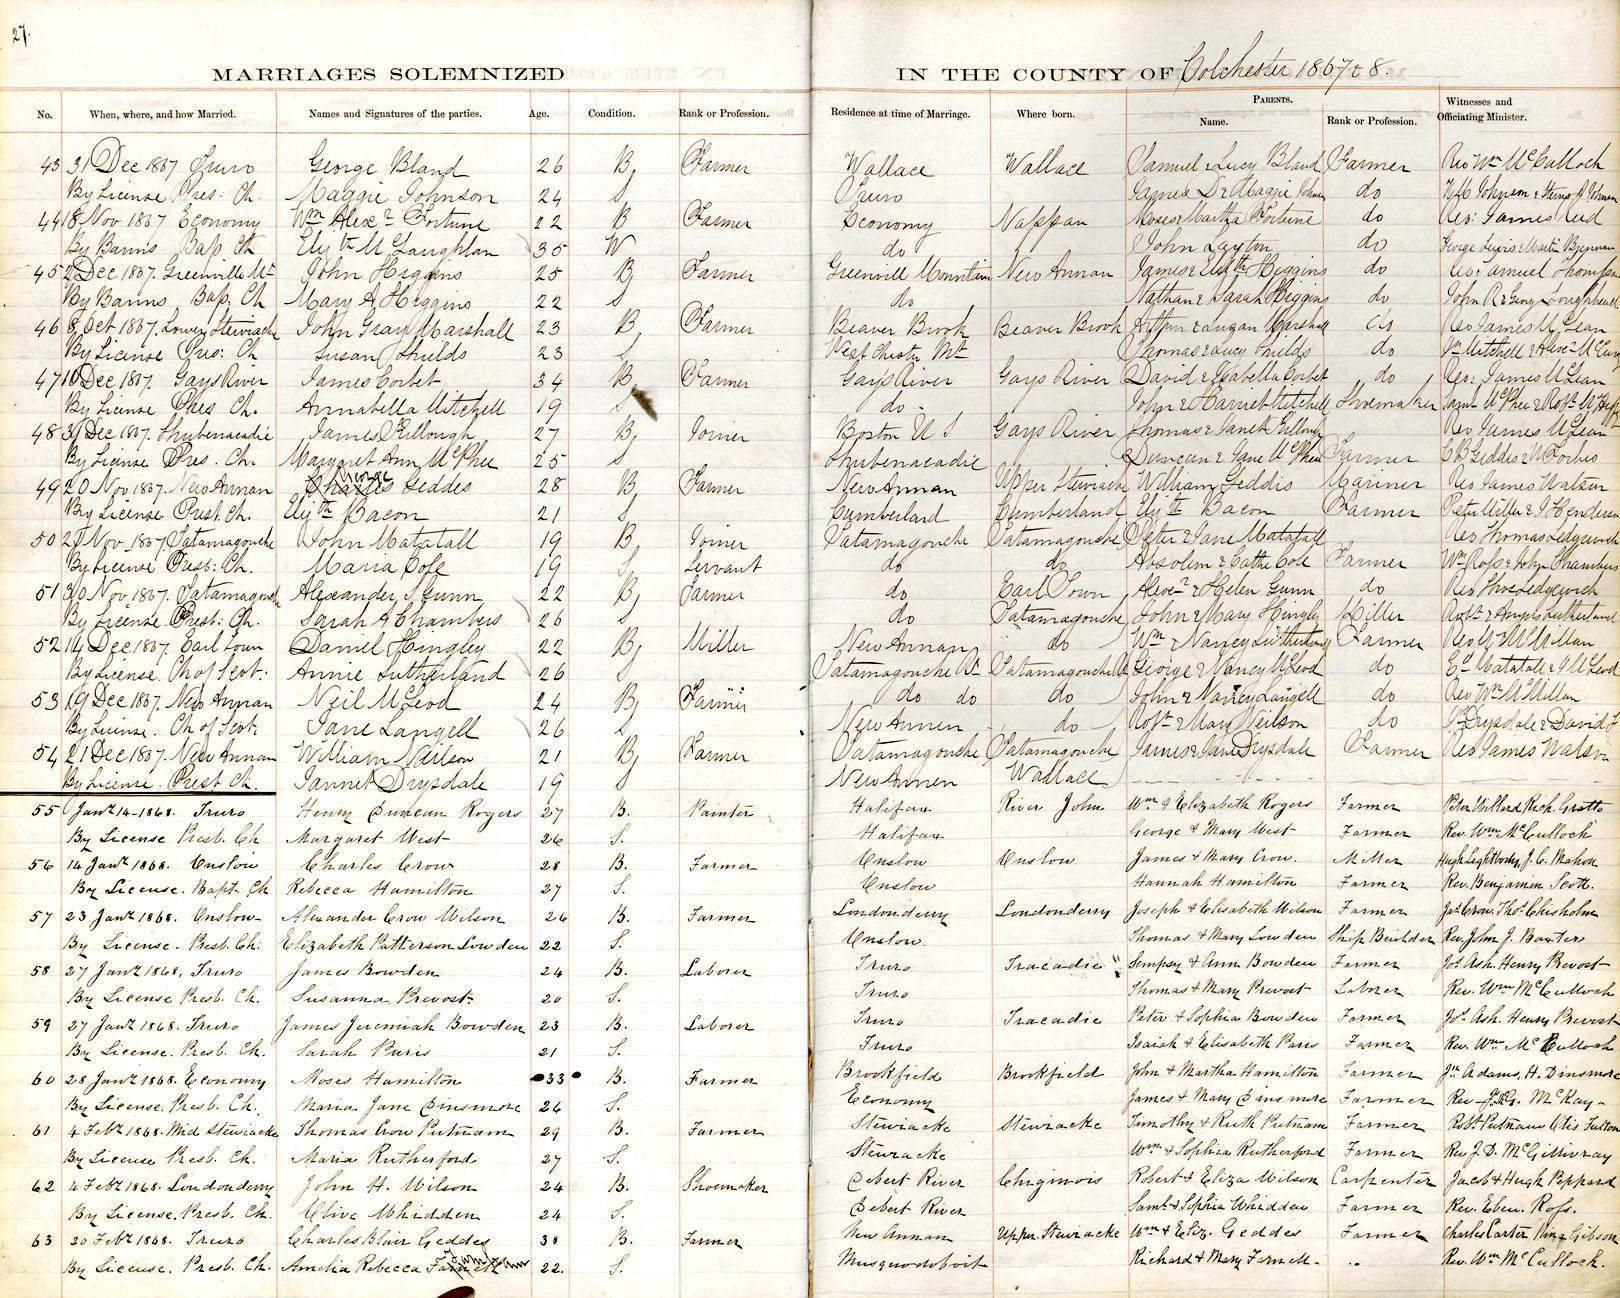 27.
MARRIAGES SOLEMNIZED IN THE COUNTY OF Colchester 1867 & 8.
No. When, where, and how Married. Names and Signatures of the parties. Age. Condition. Rank or Profession. Residence at time of Marriage. Where born. PARENTS. Name. Rank or Profession. Witnesses and Officiating Minister.
43 31 Dec 1867 Truro George Bland 26 B Farmer Wallace Wallace Samuel & Lucy Bland Farmer Rev Wm McCulloch
By License Pres: Ch. Maggie Johnson 24 S Truro do
44 18 Nov 1867 Economy Wm Alexr Fortune 22 B Farmer Economy Nappan Moses & Martha Fortune do Rev: James Reid
By Banns Bap Ch Elizth McLaughlan 35 W do John Layton do George Lewis & Martin Brennan
45 2 Dec 1867. Greenville Mt John Higgins 25 B Farmer Greenvill Mountain New Annan James & Elizth Higgins do Rev: Samuel Thompson
By Banns Bap. Ch Mary A Higgins 22 S do Nathan & Sarah Higgins do
46 8 Oct 1867. Lower Stewiacke John Gray Marshall 23 B Farmer Beaver Brook Beaver Brook Marshall do Rev James McLean
By License Pres: Ch Susan Shields 23 S West Chester Mt Thomas & Lucy Shields do
47 10 Dec 1867. Gays River James Corbet 34 B Farmer Gays River Gays River David & Isabella Corbet do Rev: James McLean
By License Pres Ch. Annabella Mitchell 19 S do John & Harriet Mitchell Shoemaker
48 31 Dec 1867. Shubenacadie James Killough 27 B Joiner Boston U S Gays River Thomas & Janet Killough Rev James McLean
By License Pres. Ch. Margaret Ann McPhee 25 S Shubenacadie Duncan & Jane McPhee Farmer
49 20 Nov 1867. New Annan George Geddes 28 B Farmer New Annan Upper Stewiacke William Geddis Mariner Rev James Watson
By License Prest. Ch. Elizth Bacon 21 S Cumberland Cumberland Elizth Bacon Farmer
50 2 Nov 1867. Tatamagouche John Matatall 19 B Joiner Tatamagouche Tatamagouche Peter & Jane Matatall Rev Thomas Sedgewick
By License Presb: Ch. Maria Cole 19 S Servant do do Absolem & Cathe Cole Farmer Wm Ross & John Chambers
51 30 Nov 1867. Tatamagouche Alexander S Gunn 22 B Farmer do Earl Town Alexr & Helen Gunn do Rev Thos Sedgewick
By License Presb: Ch. Sarah A Chambers 26 S do Tatamagouche John & Mary Hingley Miller
52 14 Dec 1867. Earl Town Daniel Hingley 22 B Miller New Annan do Wm & Nancy Sutherland Farmer
By License. Ch of Scot: Annie Sutherland 26 S Tatamagouche George & Nancy McLeod do
53 19 Dec 1867. New Annan Neil McLeod 24 B Farmer do do do John & Nancy Langell do Rev Wm McMillan
By License. Ch of Scot. Jane Langell 26 S New Annen do Robt & Mary Neilson do
54 21 Dec 1867. New Annan William Neilson 21 B Farmer Tatamagouche Tatamagouche James & Jane Drysdale Farmer Rev James Watson
By License. Prest Ch. Jannet Drysdale 19 S New Annen Wallace
55 Jany 14-1868. Truro Henry Duncan Rogers 27 B. Painter Halifax River John Wm & Elizabeth Rogers Farmer Peter Millard Rich. Gratto
By License Presb. Ch Margaret West 26 S. Halifax George & Mary West Farmer Rev. Wm McCulloch
56 14 Jany 1868. Onslow Charles Crow 28 B. Farmer Onslow Onslow James & Mary Crow. Miller Hugh Lightbody, J. C. Mahon
By License. Bapt. Ch Rebecca Hamilton 27 S. Onslow Hannah Hamilton Farmer Rev. Benjamin Scott.
57 23 Jany 1868. Onslow Alexander Crow Wilson 26 B. Farmer Londonderry Londonderry Joseph & Elisabeth Wilson Farmer Jas Crow. Thos Chisholm
By License. Presb. Ch. Elizabeth Patterson Lowden 22 S. Onslow. Thomas & Mary Lowden Ship Builder Rev. John J. Baxter
58 27 Jany 1868, Truro James Bowden 24 B. Laborer Truro Tracadie Sempsy & Ann Bowden Farmer Jos Ash. Henry Prevost
By License Presb. Ch. Susanna Prevost 20 S. Truro Thomas & Mary Prevost Laborer Rev. Wm McCulloch
59 27 Jany 1868. Truro James Jeremiah Bowden 23 B. Laborer Truro Tracadie Peter & Sophia Bowden Farmer Jos Ash. Henry Prevost
By License. Presb. Ch. Sarah Paris 21 S. Truro Isaiah & Elisabeth Paris Farmer Rev. Wm McCulloch
60 28 Jany 1868. Economy Moses Hamilton 33 B. Farmer Brookfield Brookfield John & Martha Hamilton Farmer Jn Adams, H. Dinsmore
By License. Presb. Ch. Maria Jane Dinsmore 26 S. Economy James & Mary Dinsmore Farmer Rev McKay
61 4 Feby 1868. Mid Stewiacke Thomas Crow Putnam 29 B. Farmer Stewiacke Stewiacke Timothy & Ruth Putnam Farmer Robt Putnam Otis Fulton
By License Presb. Ch. Maria Rutherford 27 S. Stewiacke Wm & Sophia Rutherford Farmer Rev J. D. McGillivray
62 4 Feby 1868. Londonderry John H. Wilson 24 B. Shoemaker Debert River Chiganois Robert & Eliza Wilson Carpenter Jacob & Hugh Peppard
By License. Presb. Ch. Olive Whidden 24 S. Debert River Saml & Sophia Whidden Farmer Rev. Eben. Ross.
63 20 Feby 1868. Truro Charles Blair Geddes 31 B. Farmer New Annan Upper Stewiacke Wm & Eliz. Geddes Farmer Charles Carter Nina Gibson
By License. Presb. Ch. Amelia Rebecca 22. S. Musquodoboit Richard & Mary Farnell Rev. Wm McCulloch.